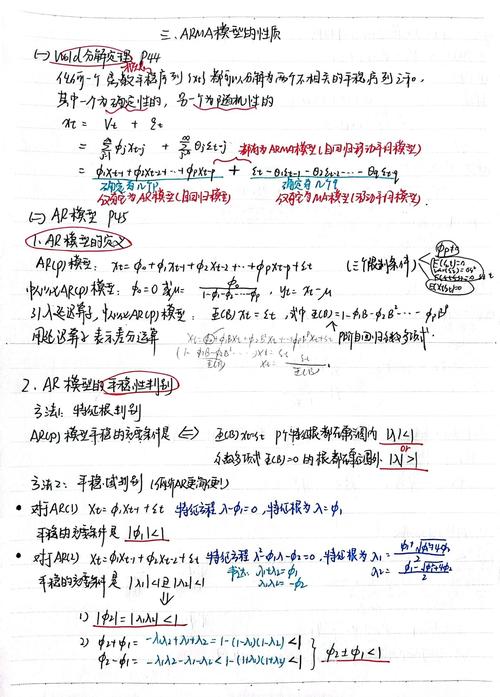 三、ARMA模型的性质
(一) Wold分解定理 P44
任何一个离散平稳序列{xt}都可以分解为两个不相关的平稳序列之和。
其中一个为确定性的,另一个为随机性的
xt = Vt + εt
= Σ φjxt-j + Σ θjεt-j 都称为ARMA模型(自回归移动平均模型)
= φ1xt-1+φ2xt-2+…+φpxt-p + εt-θ1εt-1-θ2εt-2-…-θqεt-q
仅称它为AR模型(自回归模型) 仅称它为MA模型(移动平均模型)
(二) AR模型 P45
1. AR模型的定义
φp≠0
AR(p)模型: xt=φ0+φ1xt-1+φ2xt-2+…+φpxt-p+εt (三个限制条件)
E(εt)=0
E(xsεt)=0
中心化AR(p)模型: φ0=0 或 μ=φ0/(1-φ1-φ2-…-φp), yt=xt-μ
引入延迟算子,中心化AR(p)模型: Φ(B)xt=εt, 式中Φ(B)=1-φ1B-φ2B²-…-φpBᵖ
用延迟算子表示差分运算 p阶自回归系数多项式.
2. AR模型的平稳性判别
方法1: 特征根判别
AR(p)模型平稳的充要条件是 ⟺ Φ(B)xt=εt p个特征根都在单位圆内 |λ|<1
or
Φ(B)=0 的根都在单位圆外 |λ|>1
方法2: 平稳域判别
• 对于AR(1) xt=φ1xt-1+εt 特征方程λ-φ1=0, 特征根为λ=φ1
平稳的充要条件是 |φ1|<1
• 对于AR(2) xt=φ1xt-1+φ2xt-2+εt 特征方程λ²-φ1λ-φ2=0, 特征根为 λ1=(φ1+√(φ1²+4φ2))/2
韦达: λ1+λ2=φ1 λ2=(φ1-√(φ1²+4φ2))/2
λ1λ2=-φ2
平稳的充要条件是 |λ1|<1且|λ2|<1
⇓
1) |φ2|=|λ1λ2|<1
2) φ2+φ1=-λ1λ2+λ1+λ2=1-(1-λ1)(1-λ2)<1
φ2-φ1=-λ1λ2-λ1-λ2=1-(1+λ1)(1+λ2)<1
φ2±φ1<1